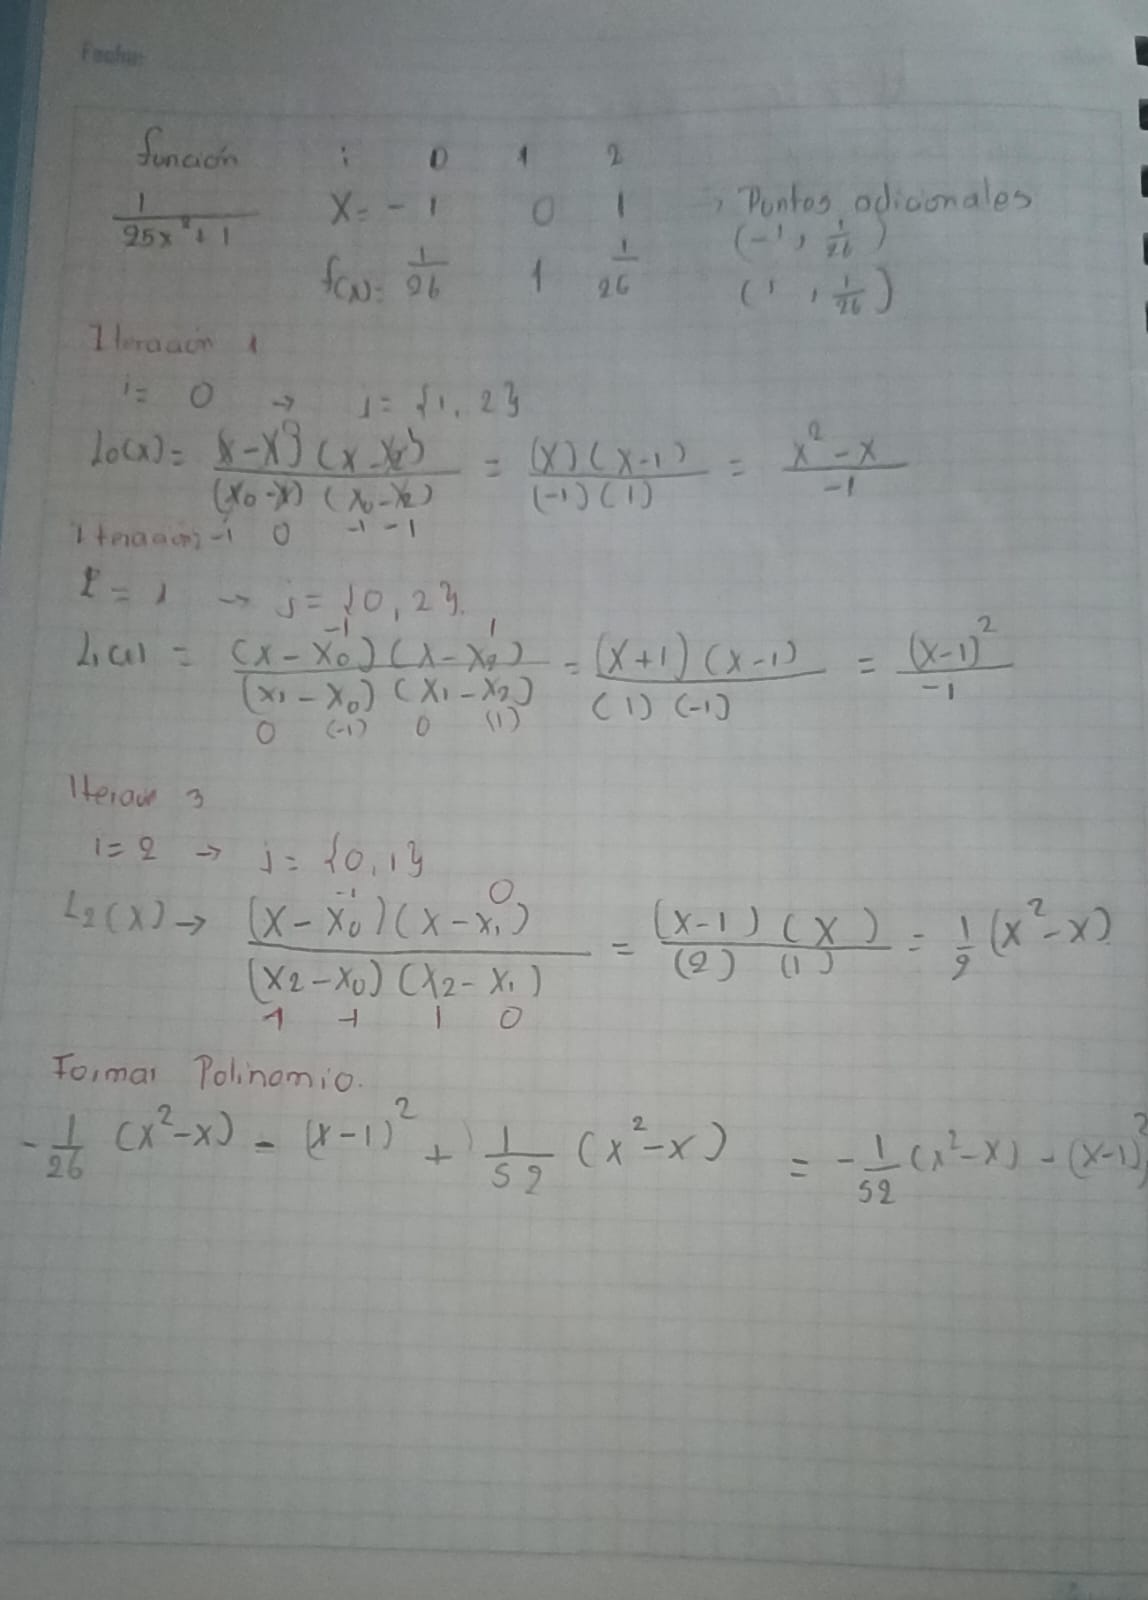 Fecha:
función i 0 1 2
1/(25x²+1) X= -1 0 1 , Puntos adicionales
f(x)= 1/26 1 1/26 (-1, 1/26)
(1, 1/26)
Iteración 1
i= 0 → j= {1, 2}
L0(x)= (x-x1)(x-x2)/(x0-x1)(x0-x2) = (x)(x-1)/(-1)(1) = x²-x/-1
-1 0 -1 -1
I = 1 → j= {0, 2}.
-1 1
L1(x) = (x-x0)(x-x2)/(x1-x0)(x1-x2) = (x+1)(x-1)/(1)(-1) = (x-1)²/-1
0 (-1) 0 (1)
3
i= 2 → j= {0, 1}
-1 0
L2(x) → (x-x0)(x-x1)/(x2-x0)(x2-x1) = (x-1)(x)/(2)(1) = 1/2 (x²-x)
1 -1 1 0
Formar Polinomio.
-1/26 (x²-x) - (x-1)² + 1/52 (x²-x) = -1/52 (x²-x) - (x-1)²